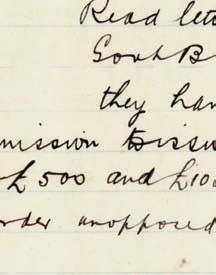 Read lett
Govt B
they hav
mission to issu
£500 and £100
rder unopposed